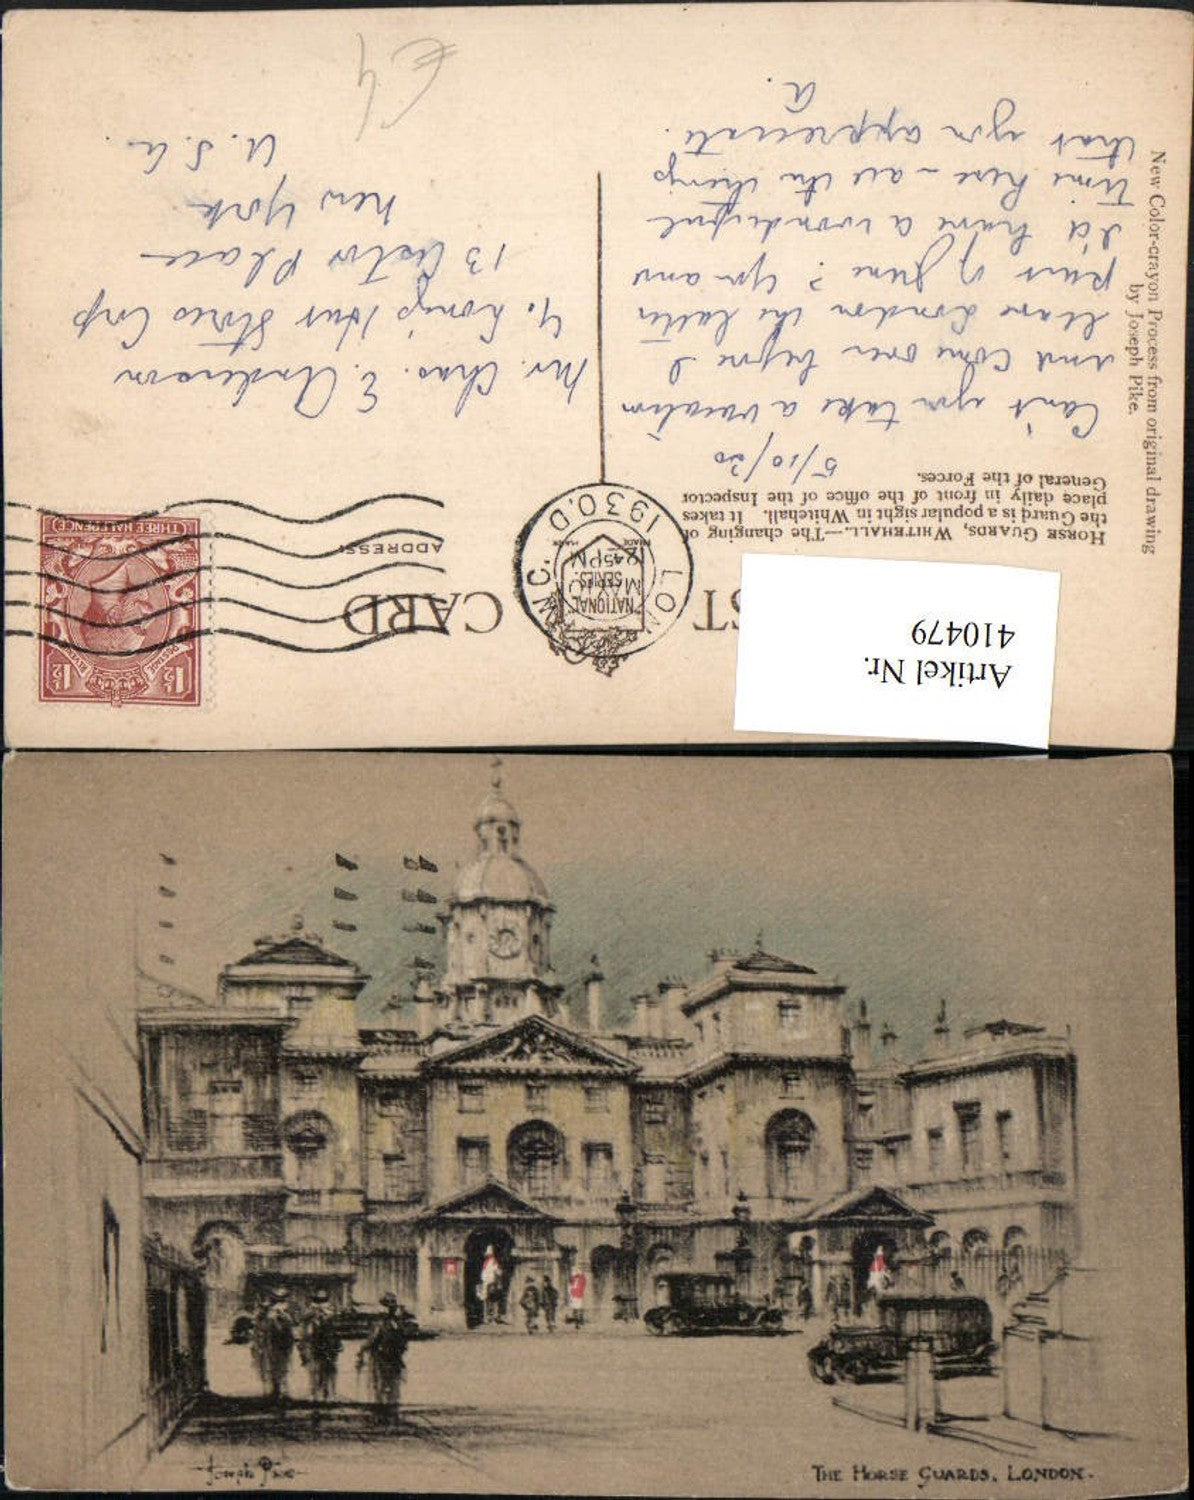 POST CARD
HORSE GUARDS, WHITEHALL.—The changing of
the Guard is a popular sight in Whitehall. It takes
place daily in front of the office of the Inspector
General of the Forces.
5/10/30
Can't you take a vacation
and come over before I
leave London the latter
part of June? You and
I'd have a wonderful
time here - all the things
that you appreciate.
A.
New Color-crayon Process from original drawing
by Joseph Pike.
TRADE MARK
"NATIONAL"
SERIES.
LONDON. W.C.
12 45PM
MAY
1930. D
ADDRESS
POSTAGE REVENUE
1½ 1½
THREE HALFPENCE
Mr. Chas. E. Anderson
Hat Stores Corp
13 Astor Place
New York
U.S.A.
€4
Artikel Nr.
410479
Joseph Pike
THE HORSE GUARDS. LONDON.